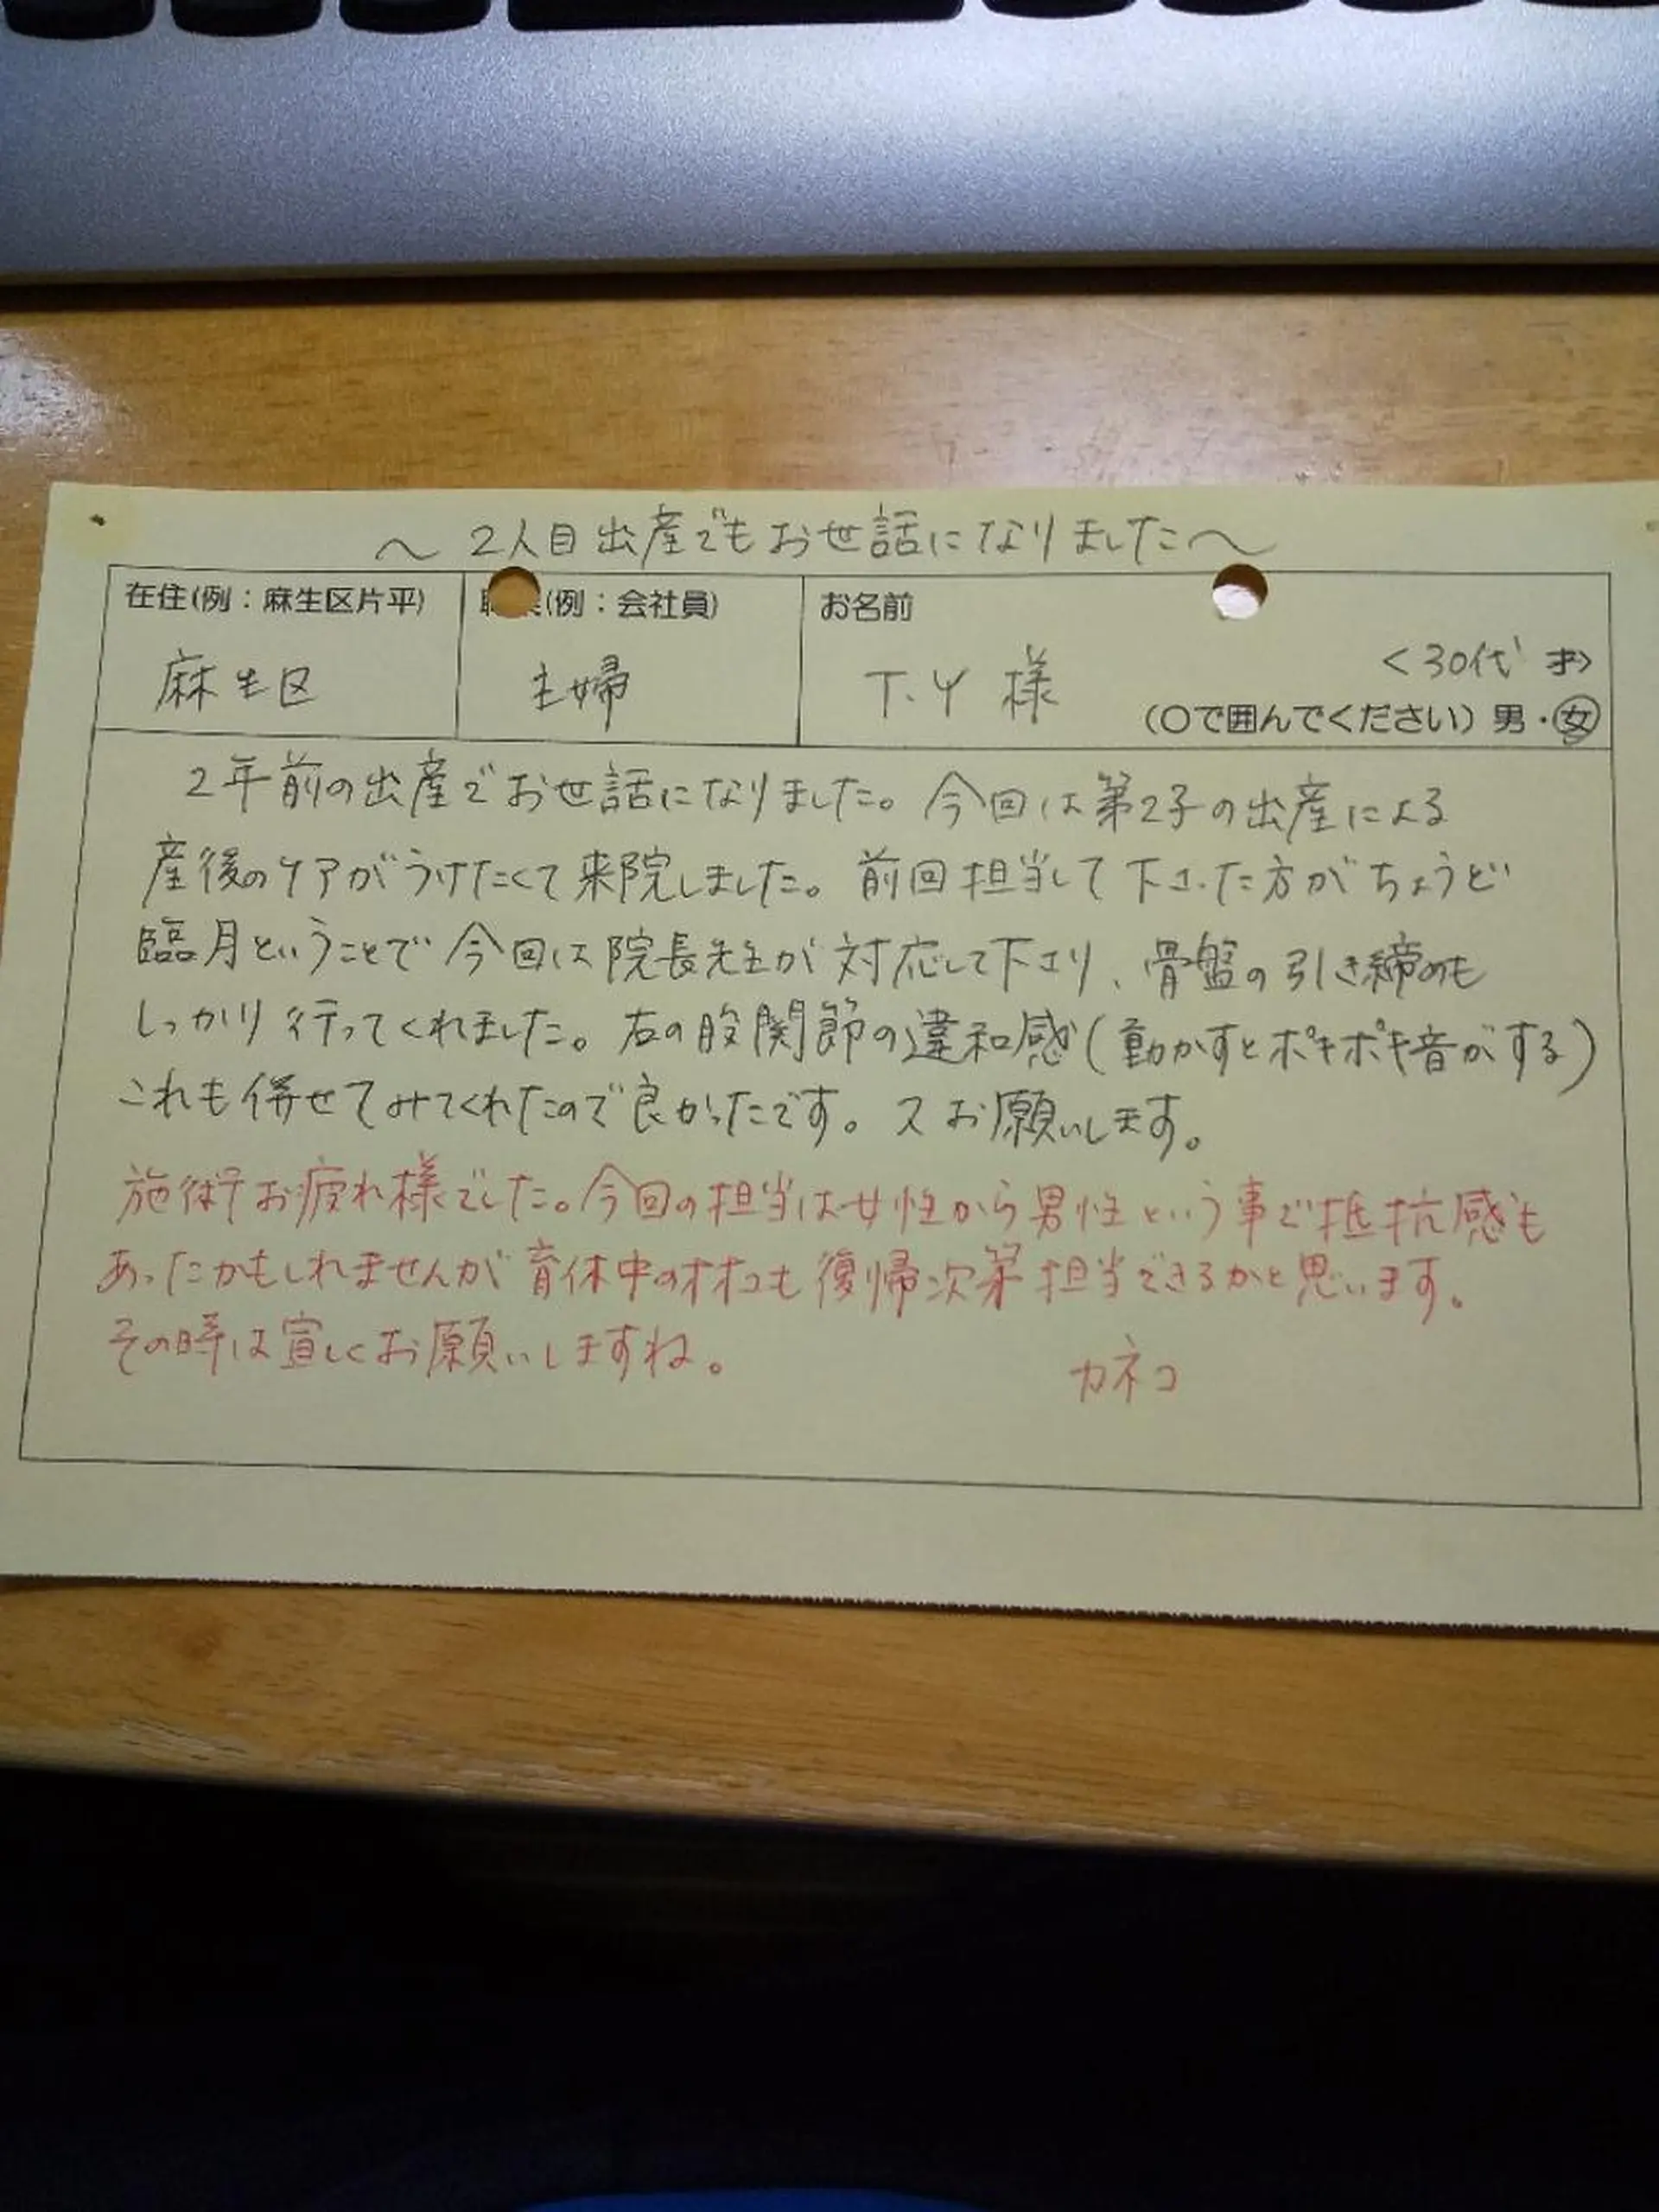 ～2人目出産でもお世話になりました～
在住(例：麻生区片平)
(例：会社員)
お名前
麻生区
主婦
T.Y 様
<30代 才>
(〇で囲んでください) 男・女
2年前の出産でお世話になりました。今回は第2子の出産による
産後のケアがうけたくて来院しました。前回担当して下さった方がちょうど
臨月ということで今回は院長先生が対応して下さり、骨盤の引き締めも
しっかり行ってくれました。右の股関節の違和感(動かすとポキポキ音がする)
これも併せてみてくれたので良かったです。又お願いします。
施術お疲れ様でした。今回の担当は女性から男性という事で抵抗感も
あったかもしれませんが育休中のオオコも復帰次第担当できるかと思います。
その時は宜しくお願いしますね。
カネコ